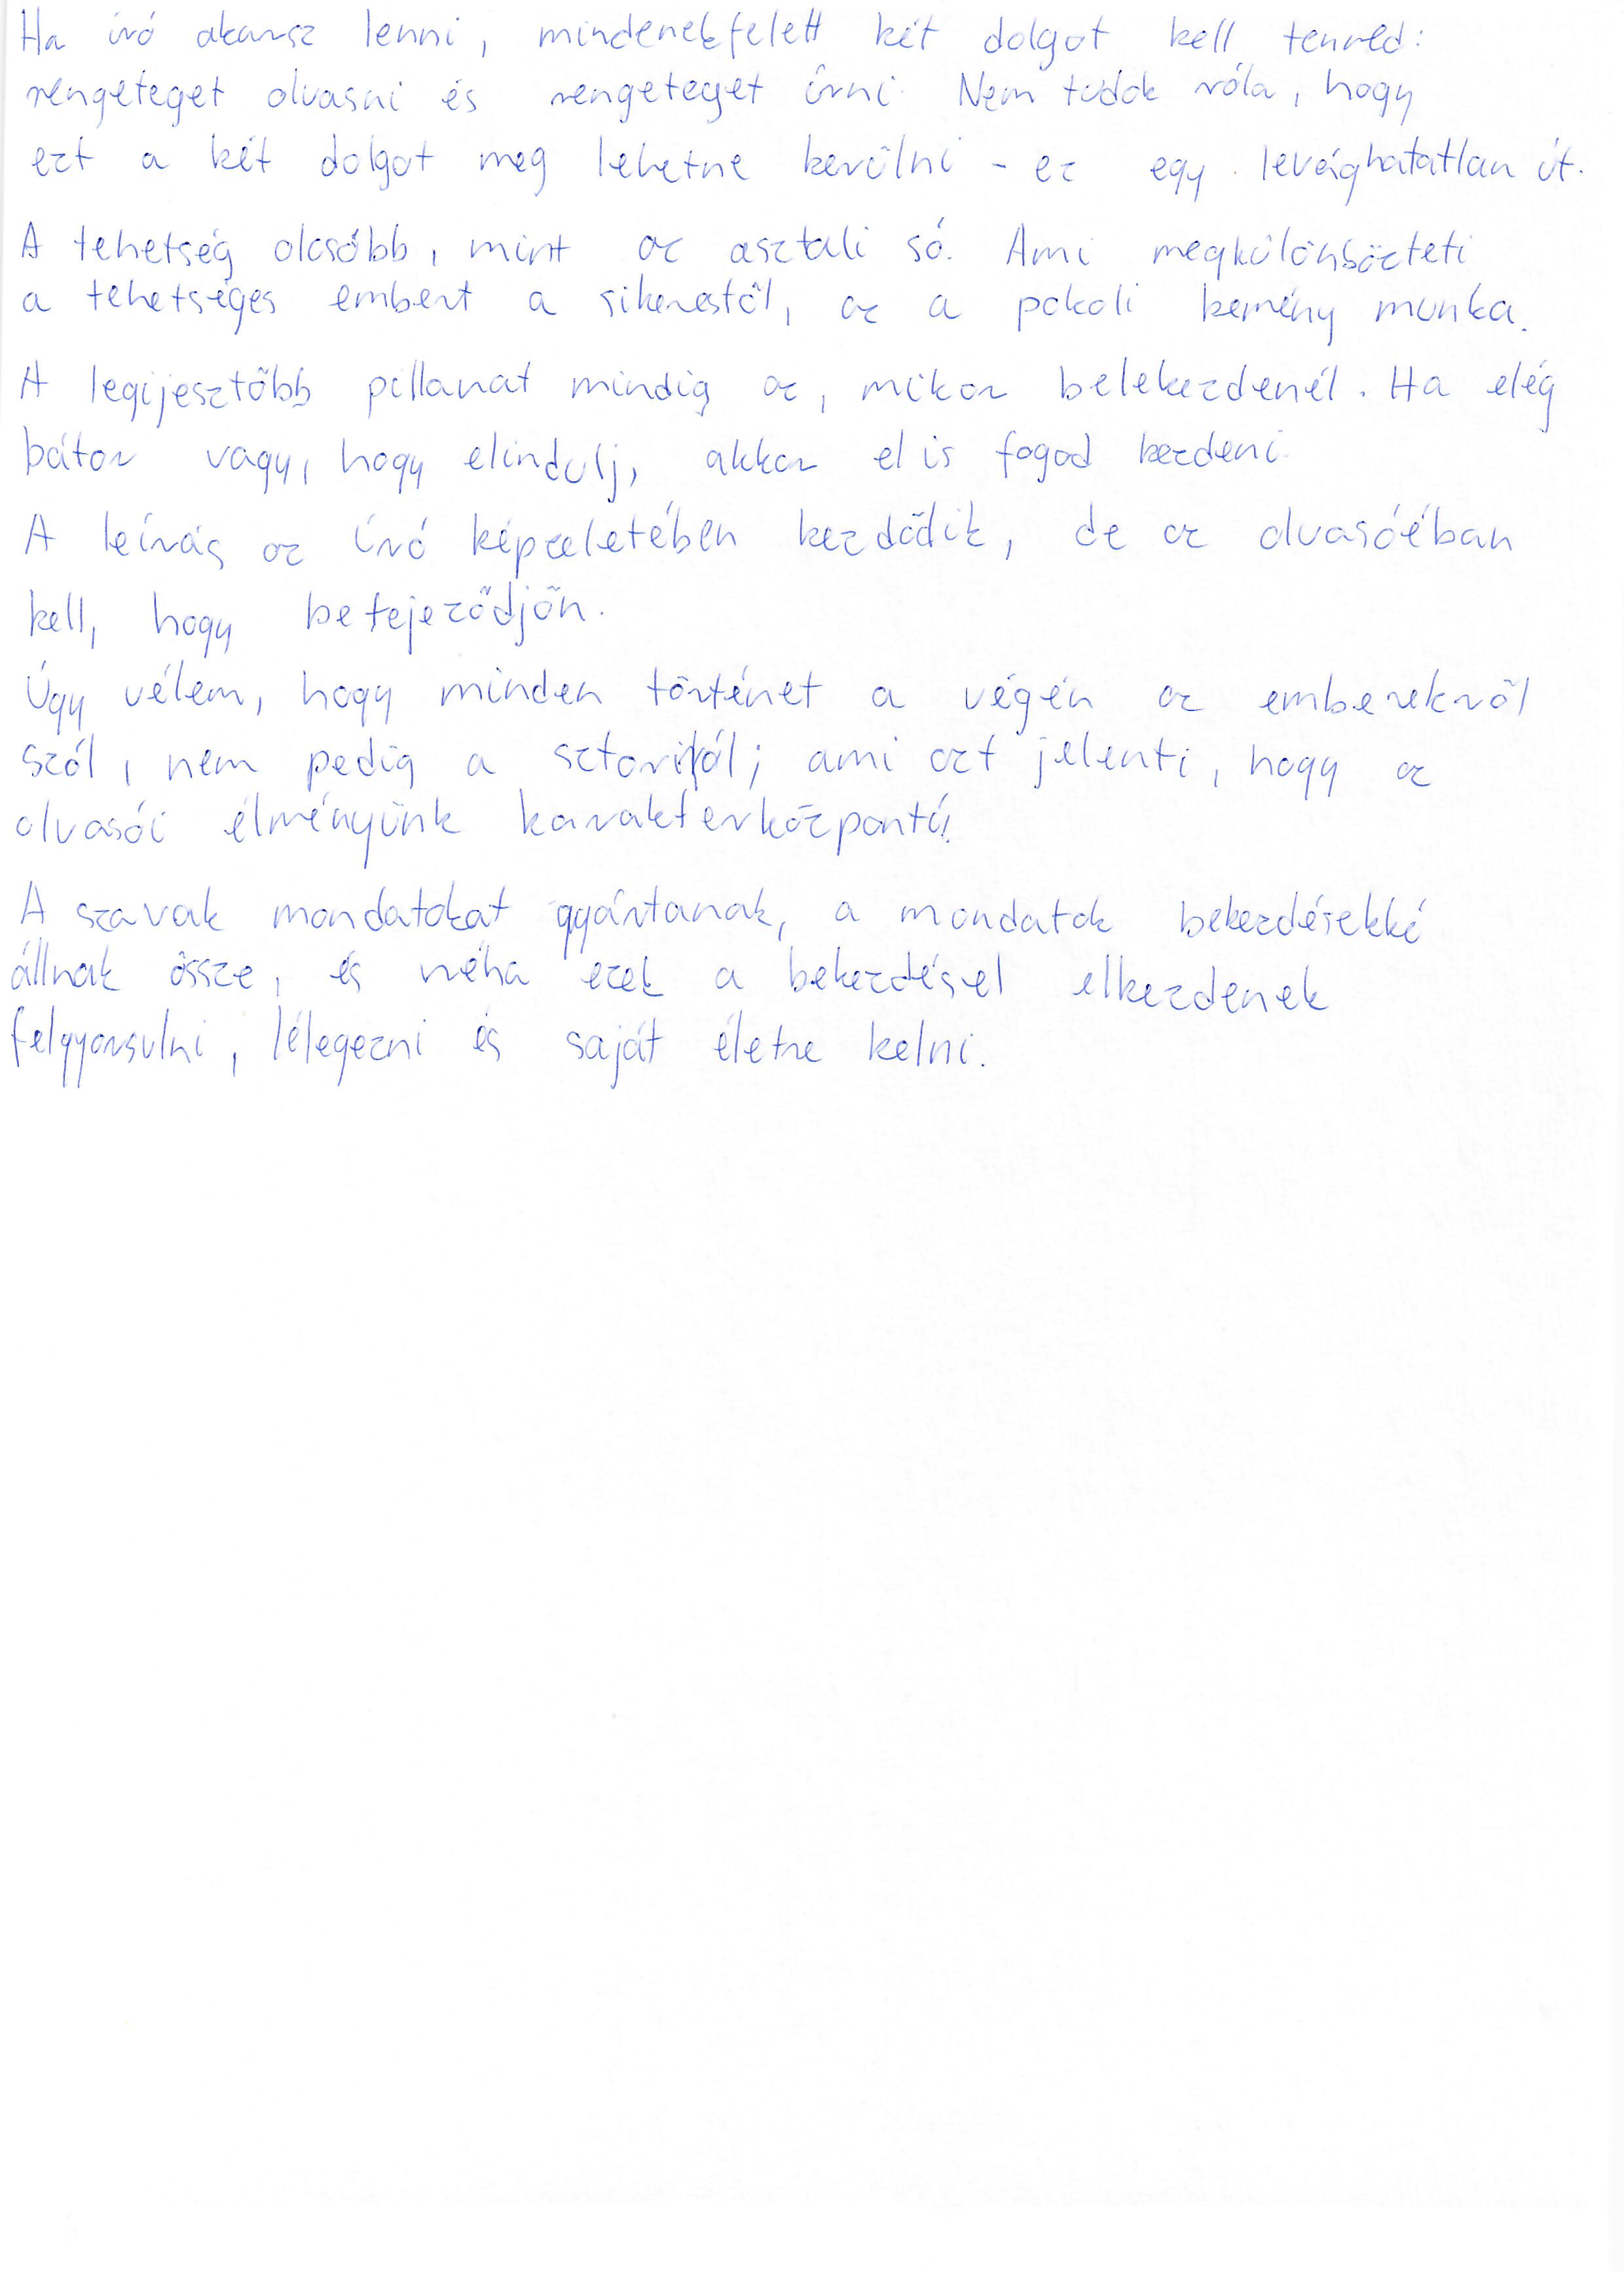 Ha író akarsz lenni, mindenekfelett két dolgot kell tenned:
rengeteget olvasni és rengeteget írni. Nem tudok róla, hogy
ezt a két dolgot meg lehetne kerülni - ez egy levághatatlan út.
A tehetség olcsóbb, mint az asztali só. Ami megkülönbözteti
a tehetséges embert a sikerestől, az a pokoli kemény munka.
A legijesztőbb pillanat mindig az, mikor belekezdenél. Ha elég
bátor vagy, hogy elindulj, akkor el is fogod kezdeni.
A leírás az író képzeletében kezdődik, de az olvasóéban
kell, hogy befejeződjön.
Úgy vélem, hogy minden történet a végén az emberekről
szól, nem pedig a sztoriról; ami azt jelenti, hogy az
olvasói élményünk karakterközpontú!
A szavak mondatokat gyártanak, a mondatok bekezdésekké
állnak össze, és néha ezek a bekezdésel elkezdenek
felgyorsulni, lélegezni és saját életre kelni.